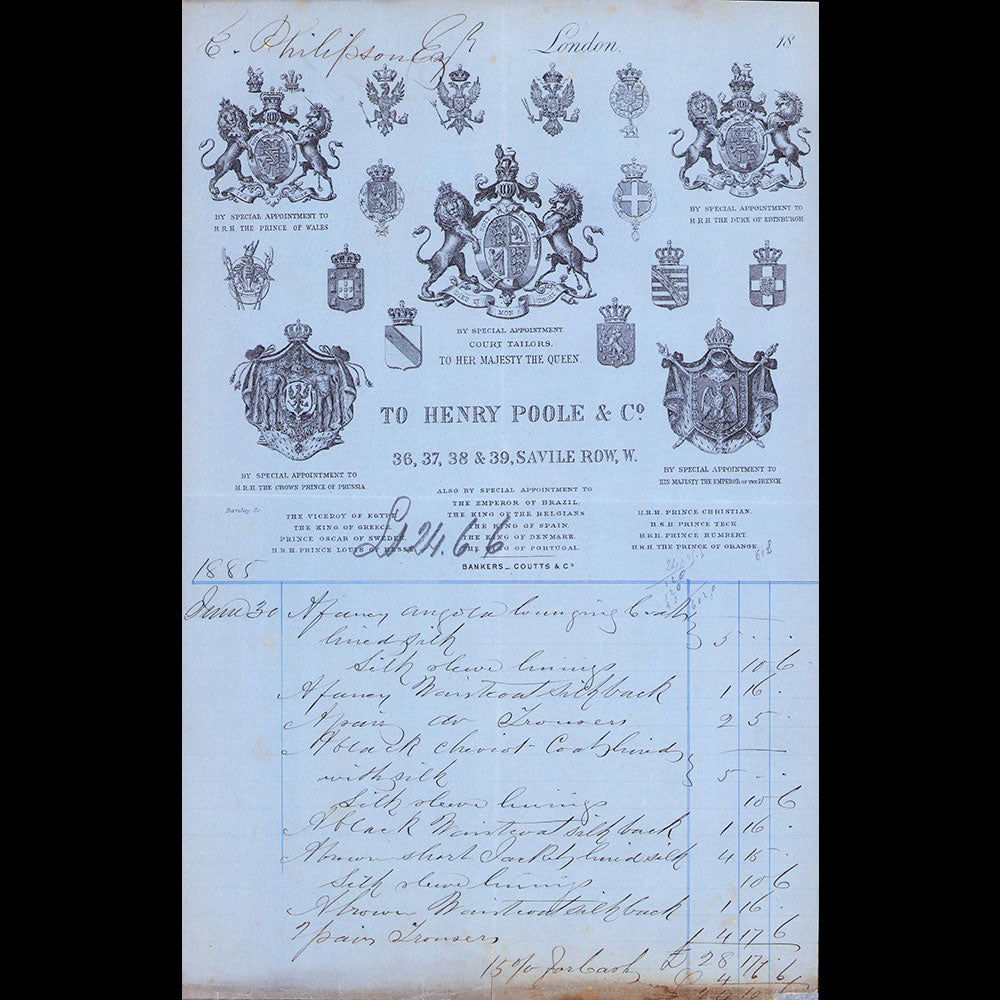 E. Philipson Esqr London. 18
BY SPECIAL APPOINTMENT TO
H.R.H. THE PRINCE OF WALES
BY SPECIAL APPOINTMENT TO
H.R.H. THE DUKE OF EDINBURGH
DIEU ET MON DROIT
BY SPECIAL APPOINTMENT
COURT TAILORS,
TO HER MAJESTY THE QUEEN.
TO HENRY POOLE & Co
36, 37, 38 & 39, SAVILE ROW, W.
BY SPECIAL APPOINTMENT TO
H.R.H. THE CROWN PRINCE OF PRUSSIA
BY SPECIAL APPOINTMENT TO
HIS MAJESTY THE EMPEROR OF THE FRENCH.
Barclay, Sc
ALSO BY SPECIAL APPOINTMENT TO
THE EMPEROR OF BRAZIL.
THE KING OF THE BELGIANS
THE KING OF SPAIN.
THE KING OF DENMARK.
THE KING OF PORTUGAL.
THE VICEROY OF EGYPT
THE KING OF GREECE.
PRINCE OSCAR OF SWEDEN.
H.R.H. PRINCE LOUIS OF HESSE.
H.R.H. PRINCE CHRISTIAN.
H.S.H. PRINCE TECK.
H.R.H. PRINCE HUMBERT.
H.R.H. THE PRINCE OF ORANGE.
£24.6.6
BANKERS _ COUTTS & Co
1885
June 30 A fancy angola lounging Coat
lined silk 5 . .
Silk sleeve linings 10 6
A fancy Waistcoat silk back 1 16 .
A pair do Trousers 2 5 .
A black cheviot Coat lined
with silk 5 . .
Silk sleeve linings 10 6
A black Waistcoat silk back 1 16 .
A brown short Jacket lined silk 4 15 .
Silk sleeve linings 10 6
A brown Waistcoat silk back 1 16 .
2 pairs Trousers 4 17 6
£ 28 17
15 % for Cash 4 6 6